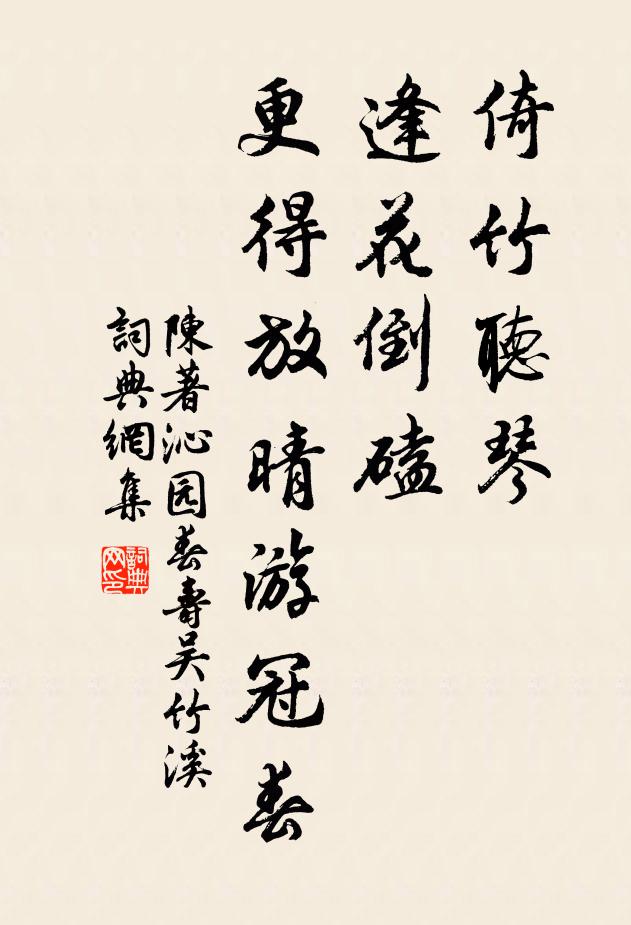 倚竹聽琴
逢花倒磕
更得放晴游冠春
陳著沁园春壽吴竹溪
詞典網集
詞典网印